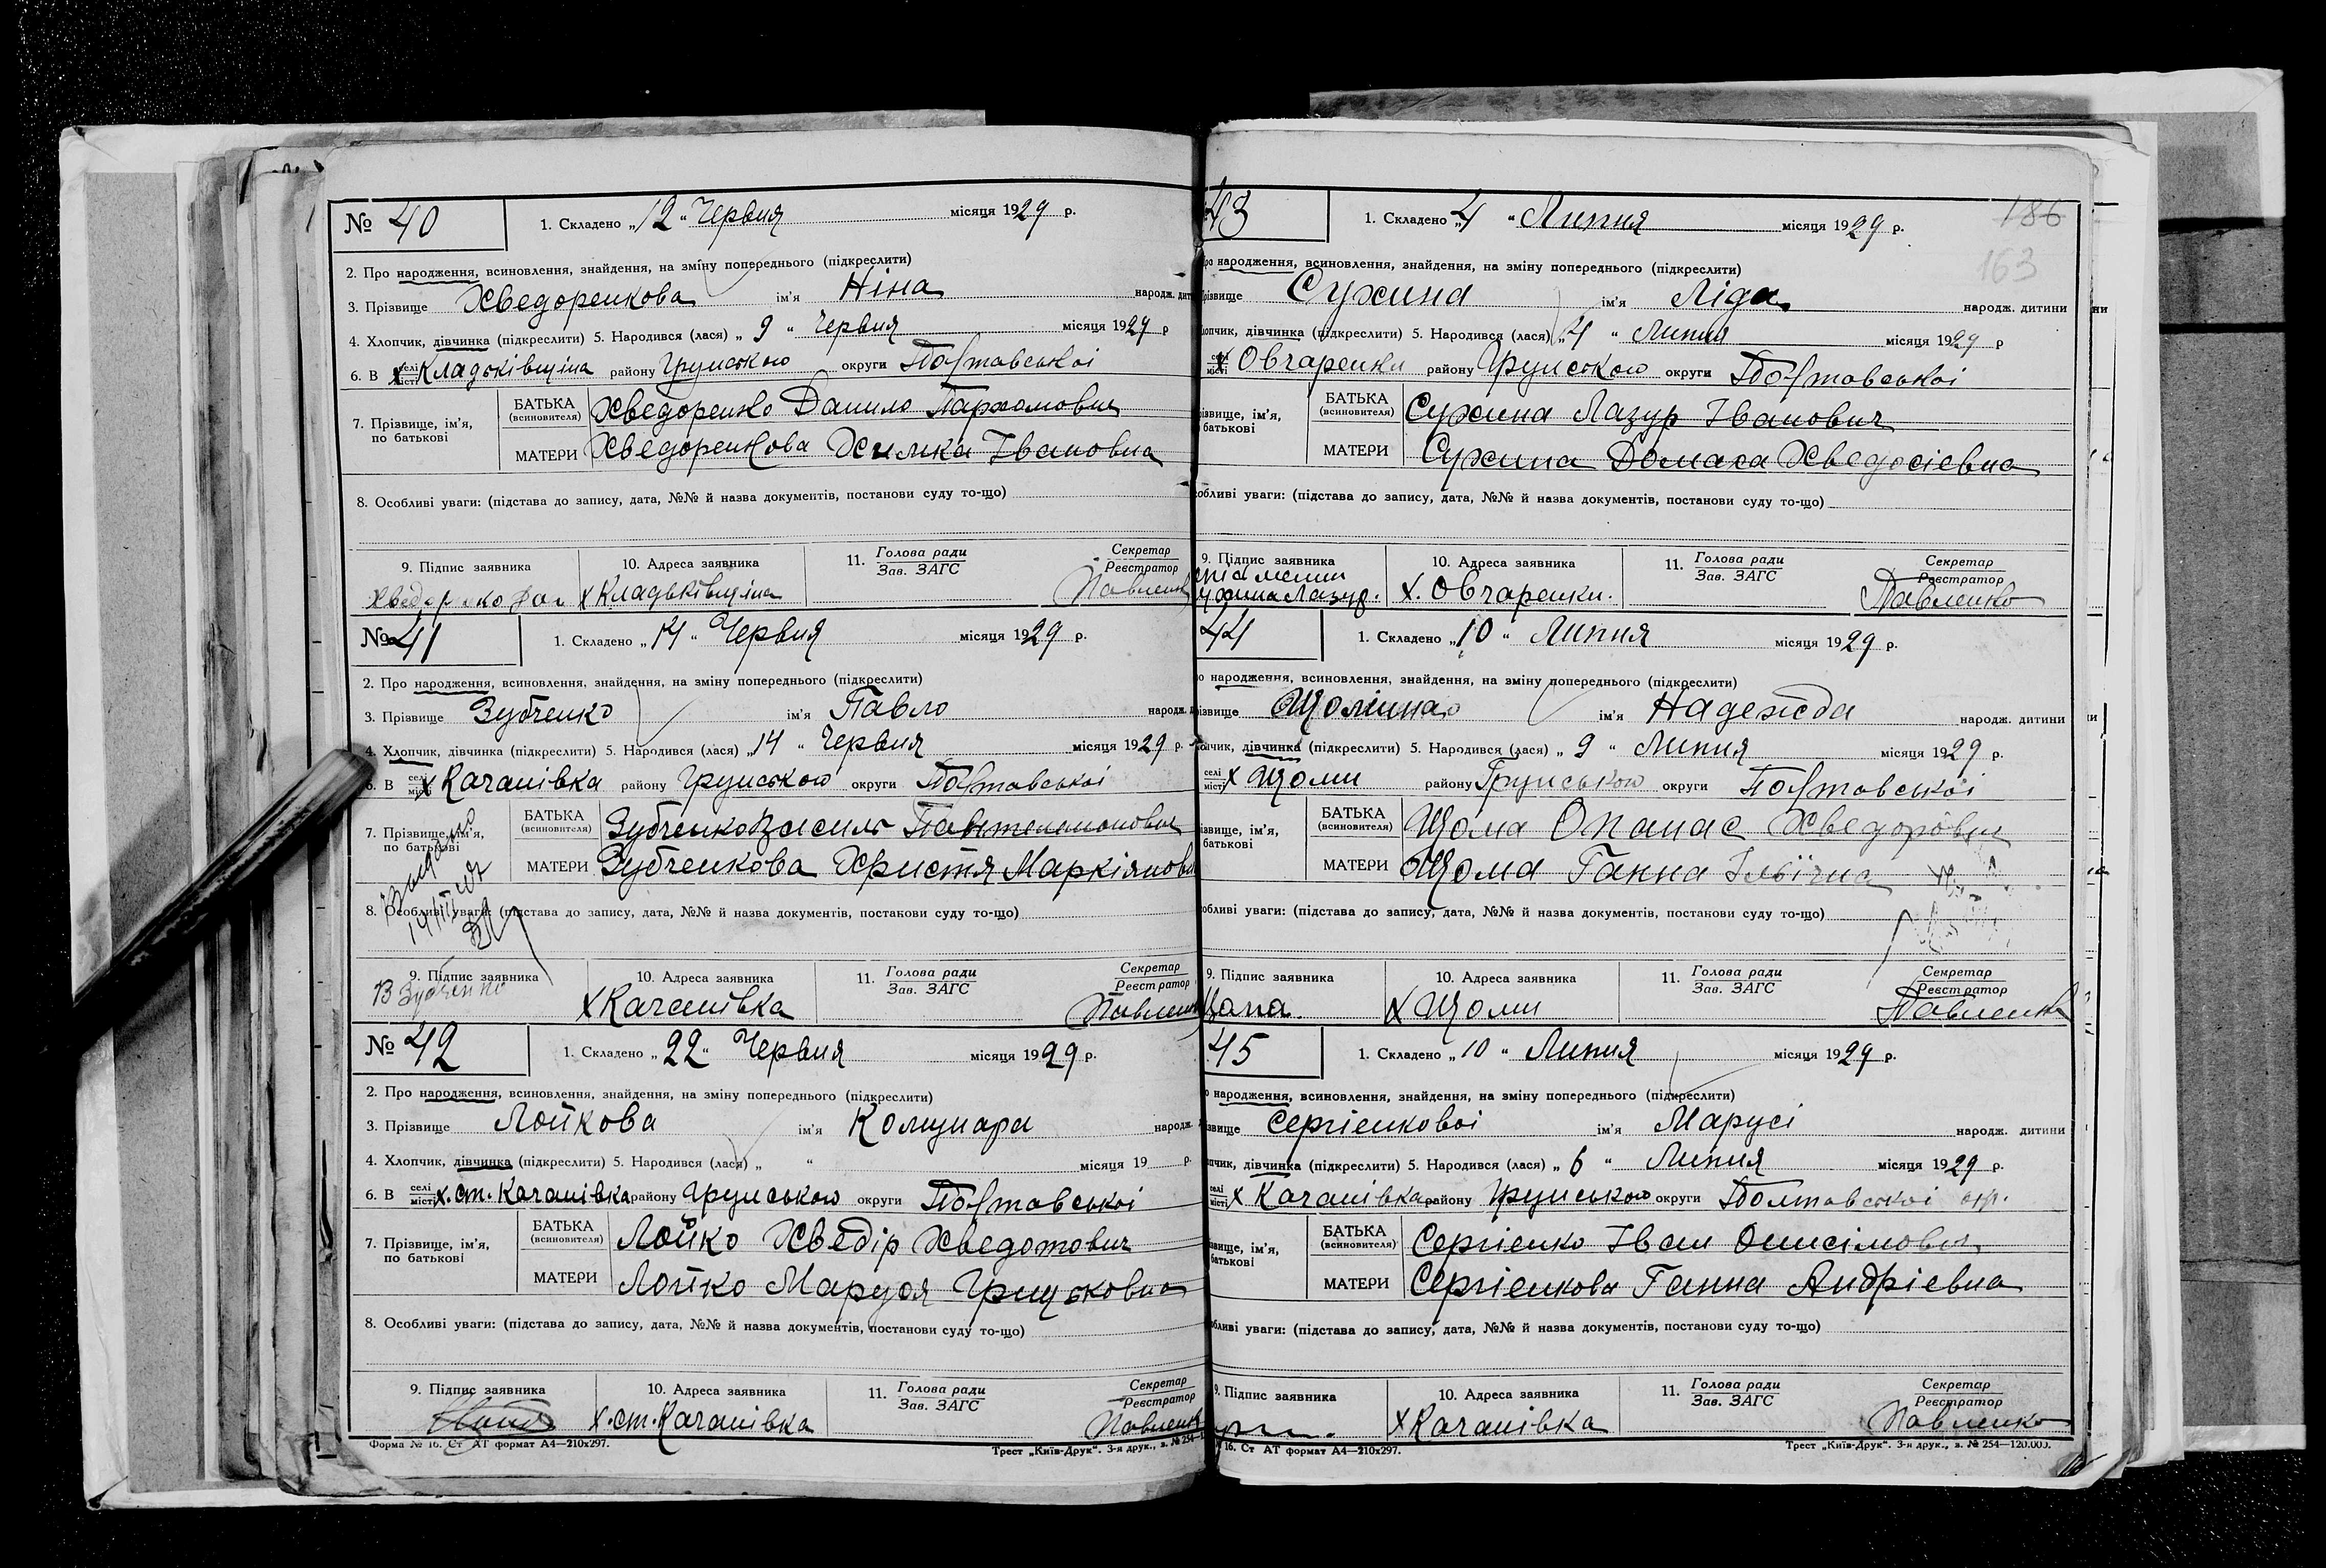 № 40 1. Складено „12" Червня місяця 1929 р.
2. Про народження, всиновлення, знайдення, на зміну попереднього (підкреслити)
3. Прізвище Хведоренкова ім'я Ніна народж. дит
4. Хлопчик, дівчинка (підкреслити) 5. Народився (лася) „9" Червня місяця 1929 р
6. В селі місті х Кладьківщина району Грунського округи Полтавської
7. Прізвище, ім'я, по батькові
БАТЬКА (всиновителя) Хведоренко Данило Пархомович
МАТЕРИ Хведоренкова Химка Івановна
8. Особливі уваги: (підстава до запису, дата, №№ й назва документів, постанови суду то-що)
9. Підпис заявника 10. Адреса заявника 11. Голова ради Зав. ЗАГС Секретар Реєстратор
Хведоренко х Кладьківщина Павленк
№ 41 1. Складено „14" Червня місяця 1929 р.
2. Про народження, всиновлення, знайдення, на зміну попереднього (підкреслити)
3. Прізвище Зубченко ім'я Павло народж. д
4. Хлопчик, дівчинка (підкреслити) 5. Народився (лася) „14" Червня місяця 1929 р.
6. В селі місті х Качанівка району Грунського округи Полтавської
7. Прізвище, ім'я, по батькові
БАТЬКА (всиновителя) Зубченко Василь Пантелемонович
МАТЕРИ Зубченкова Христя Маркіяновн
8. Особливі уваги: (підстава до запису, дата, №№ й назва документів, постанови суду то-що)
9. Підпис заявника 10. Адреса заявника 11. Голова ради Зав. ЗАГС Секретар Реєстратор
В Зубченко х Качанівка Павленк
№ 42 1. Складено „22" Червня місяця 1929 р.
2. Про народження, всиновлення, знайдення, на зміну попереднього (підкреслити)
3. Прізвище Лойкова ім'я Комунара народж.
4. Хлопчик, дівчинка (підкреслити) 5. Народився (лася) „ " місяця 19 р.
6. В селі місті х. ст. Качанівка району Грунського округи Полтавської
7. Прізвище, ім'я, по батькові
БАТЬКА (всиновителя) Лойко Хведір Хведотович
МАТЕРИ Лойко Маруся Грицьковна
8. Особливі уваги: (підстава до запису, дата, №№ й назва документів, постанови суду то-що)
9. Підпис заявника 10. Адреса заявника 11. Голова ради Зав. ЗАГС Секретар Реєстратор
х. ст. Качанівка Павленк
Форма № 16. Ст АТ формат А4—210х297. Трест „Київ-Друк". 3-я друк., з. № 254—1
43 1. Складено „4" Липня місяця 1929 р. 186
163
ро народження, всиновлення, знайдення, на зміну попереднього (підкреслити)
різвище Сухина ім'я Ліда народж. дитини
лопчик, дівчинка (підкреслити) 5. Народився (лася) „4" Липня місяця 1929 р
селі місті х Овчаренки району Грунського округи Полтавської
ізвище, ім'я, батькові
БАТЬКА (всиновителя) Сухина Лазур Іванович
МАТЕРИ Сухина Домаха Хведосієвна
обливі уваги: (підстава до запису, дата, №№ й назва документів, постанови суду то-що)
9. Підпис заявника 10. Адреса заявника 11. Голова ради Зав. ЗАГС Секретар Реєстратор
ухина Лазур. х. Овчаренки. Павленко
44 1. Складено „10" Липня місяця 1929 р.
о народження, всиновлення, знайдення, на зміну попереднього (підкреслити)
ізвище Щомина ім'я Надежда народж. дитини
пчик, дівчинка (підкреслити) 5. Народився (лася) „9" Липня місяця 1929 р.
селі місті х Щоми району Грунського округи Полтавської
ізвище, ім'я, батькові
БАТЬКА (всиновителя) Щома Опанас Хведорович
МАТЕРИ Щома Ганна Ільїчна
обливі уваги: (підстава до запису, дата, №№ й назва документів, постанови суду то-що)
9. Підпис заявника 10. Адреса заявника 11. Голова ради Зав. ЗАГС Секретар Реєстратор
х Щоми Павленк
45 1. Складено „10" Липня місяця 1929 р.
о народження, всиновлення, знайдення, на зміну попереднього (підкреслити)
звище Сергієнкової ім'я Марусі народж. дитини
пчик, дівчинка (підкреслити) 5. Народився (лася) „6" Липня місяця 1929 р.
селі місті х Качанівка району Грунського округи Полтавської окр.
звище, ім'я, батькові
БАТЬКА (всиновителя) Сергієнко Іван Онисімович
МАТЕРИ Сергієнкова Ганна Андрієвна
бливі уваги: (підстава до запису, дата, №№ й назва документів, постанови суду то-що)
9. Підпис заявника 10. Адреса заявника 11. Голова ради Зав. ЗАГС Секретар Реєстратор
х Качанівка Павленко
16. Ст АТ формат А4—210х297. Трест „Київ-Друк". 3-я друк., з. № 254—120.000.